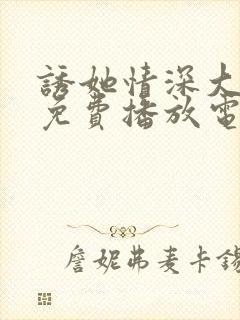 誘她情深大
免費播放電
詹妮弗麦卡錫